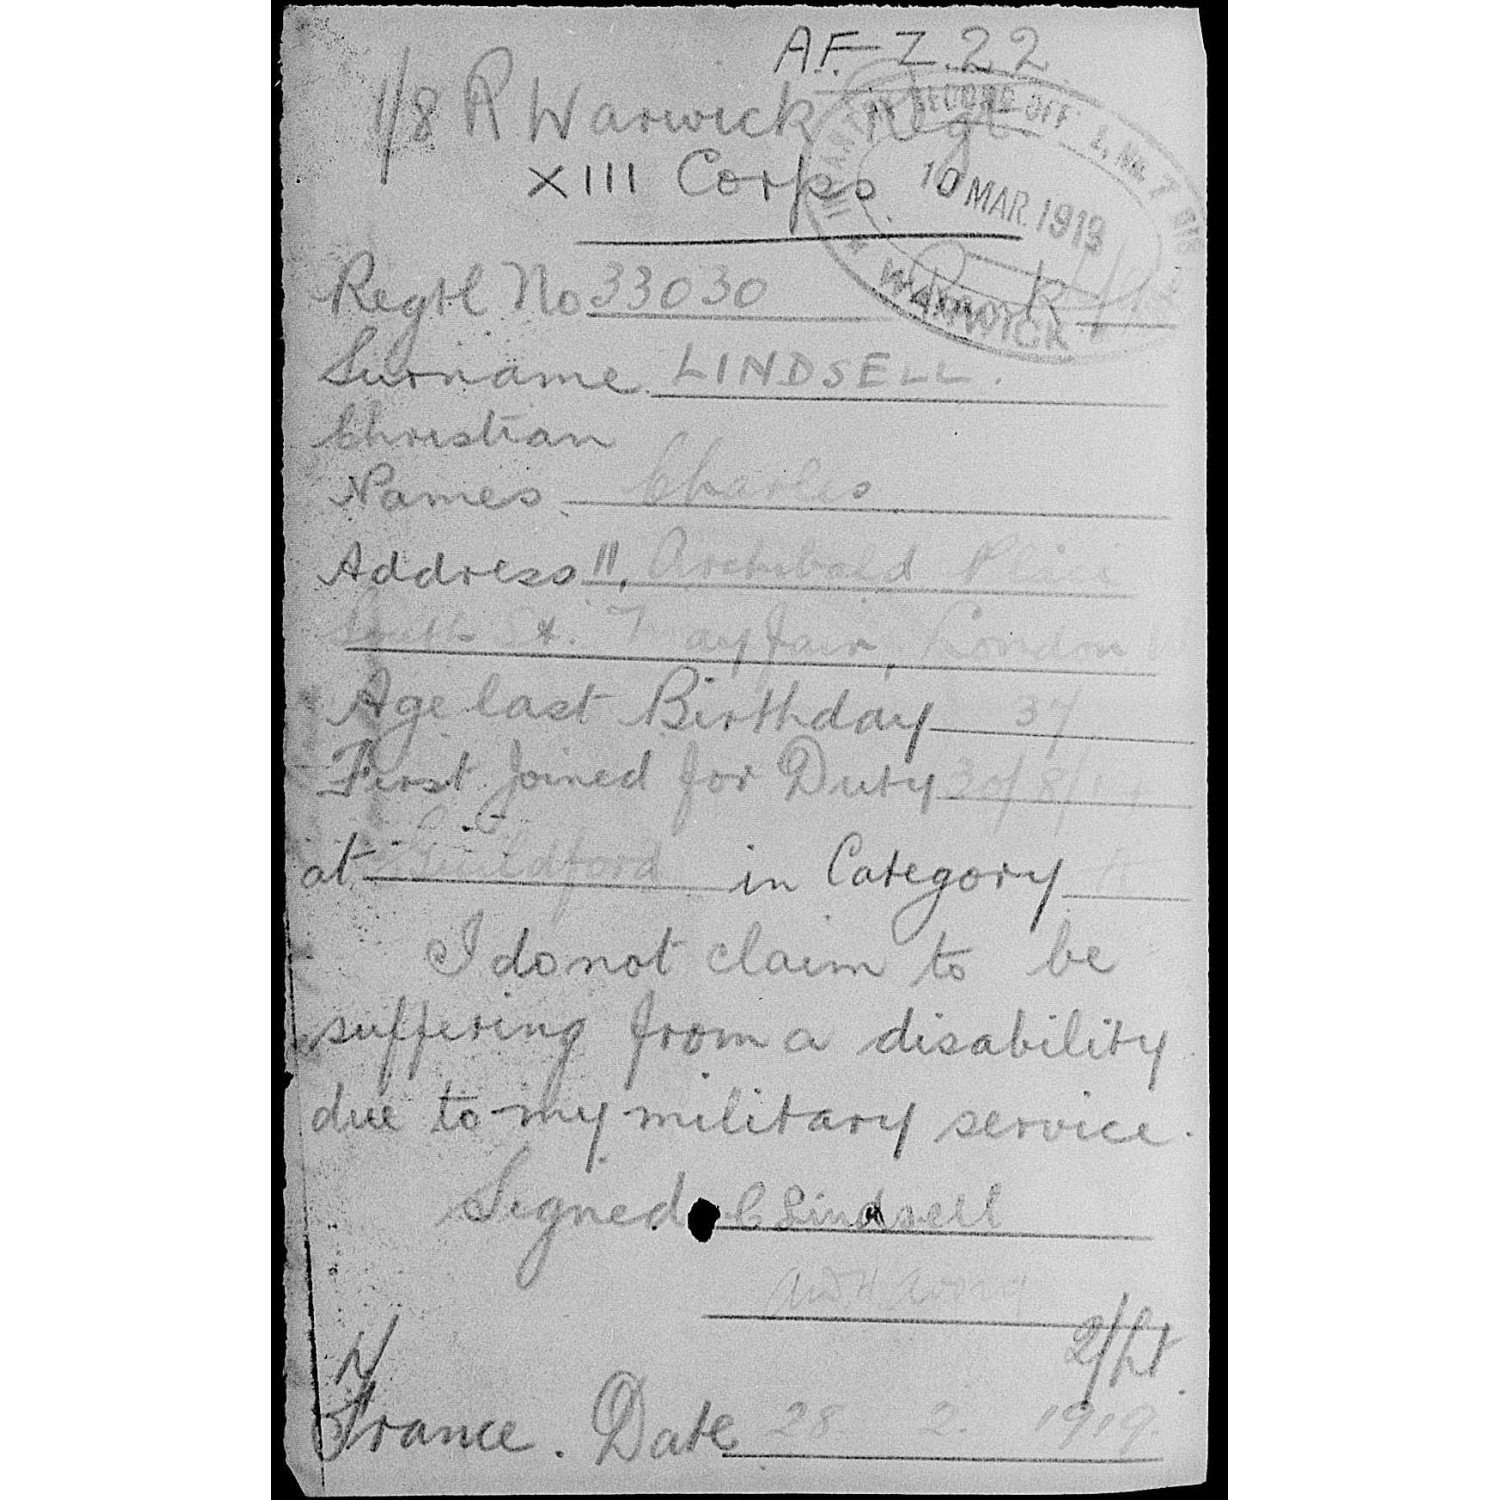 A.F. Z.22
1/8 R Warwick Regt
XIII Corps
RECORD OFF
10 MAR. 1919
WARWICK
Regtl No 33030
Surname LINDSELL.
Christian
Names Charles
Address 11, Archibald Place
South St. Mayfair, London W
Age last Birthday 37
First Joined for Duty 30/8/17
at Guildford in Category A
I do not claim to be
suffering from a disability
due to my military service.
Signed C Lindsell
2/Lt.
N
France. Date 28. 2. 1919.